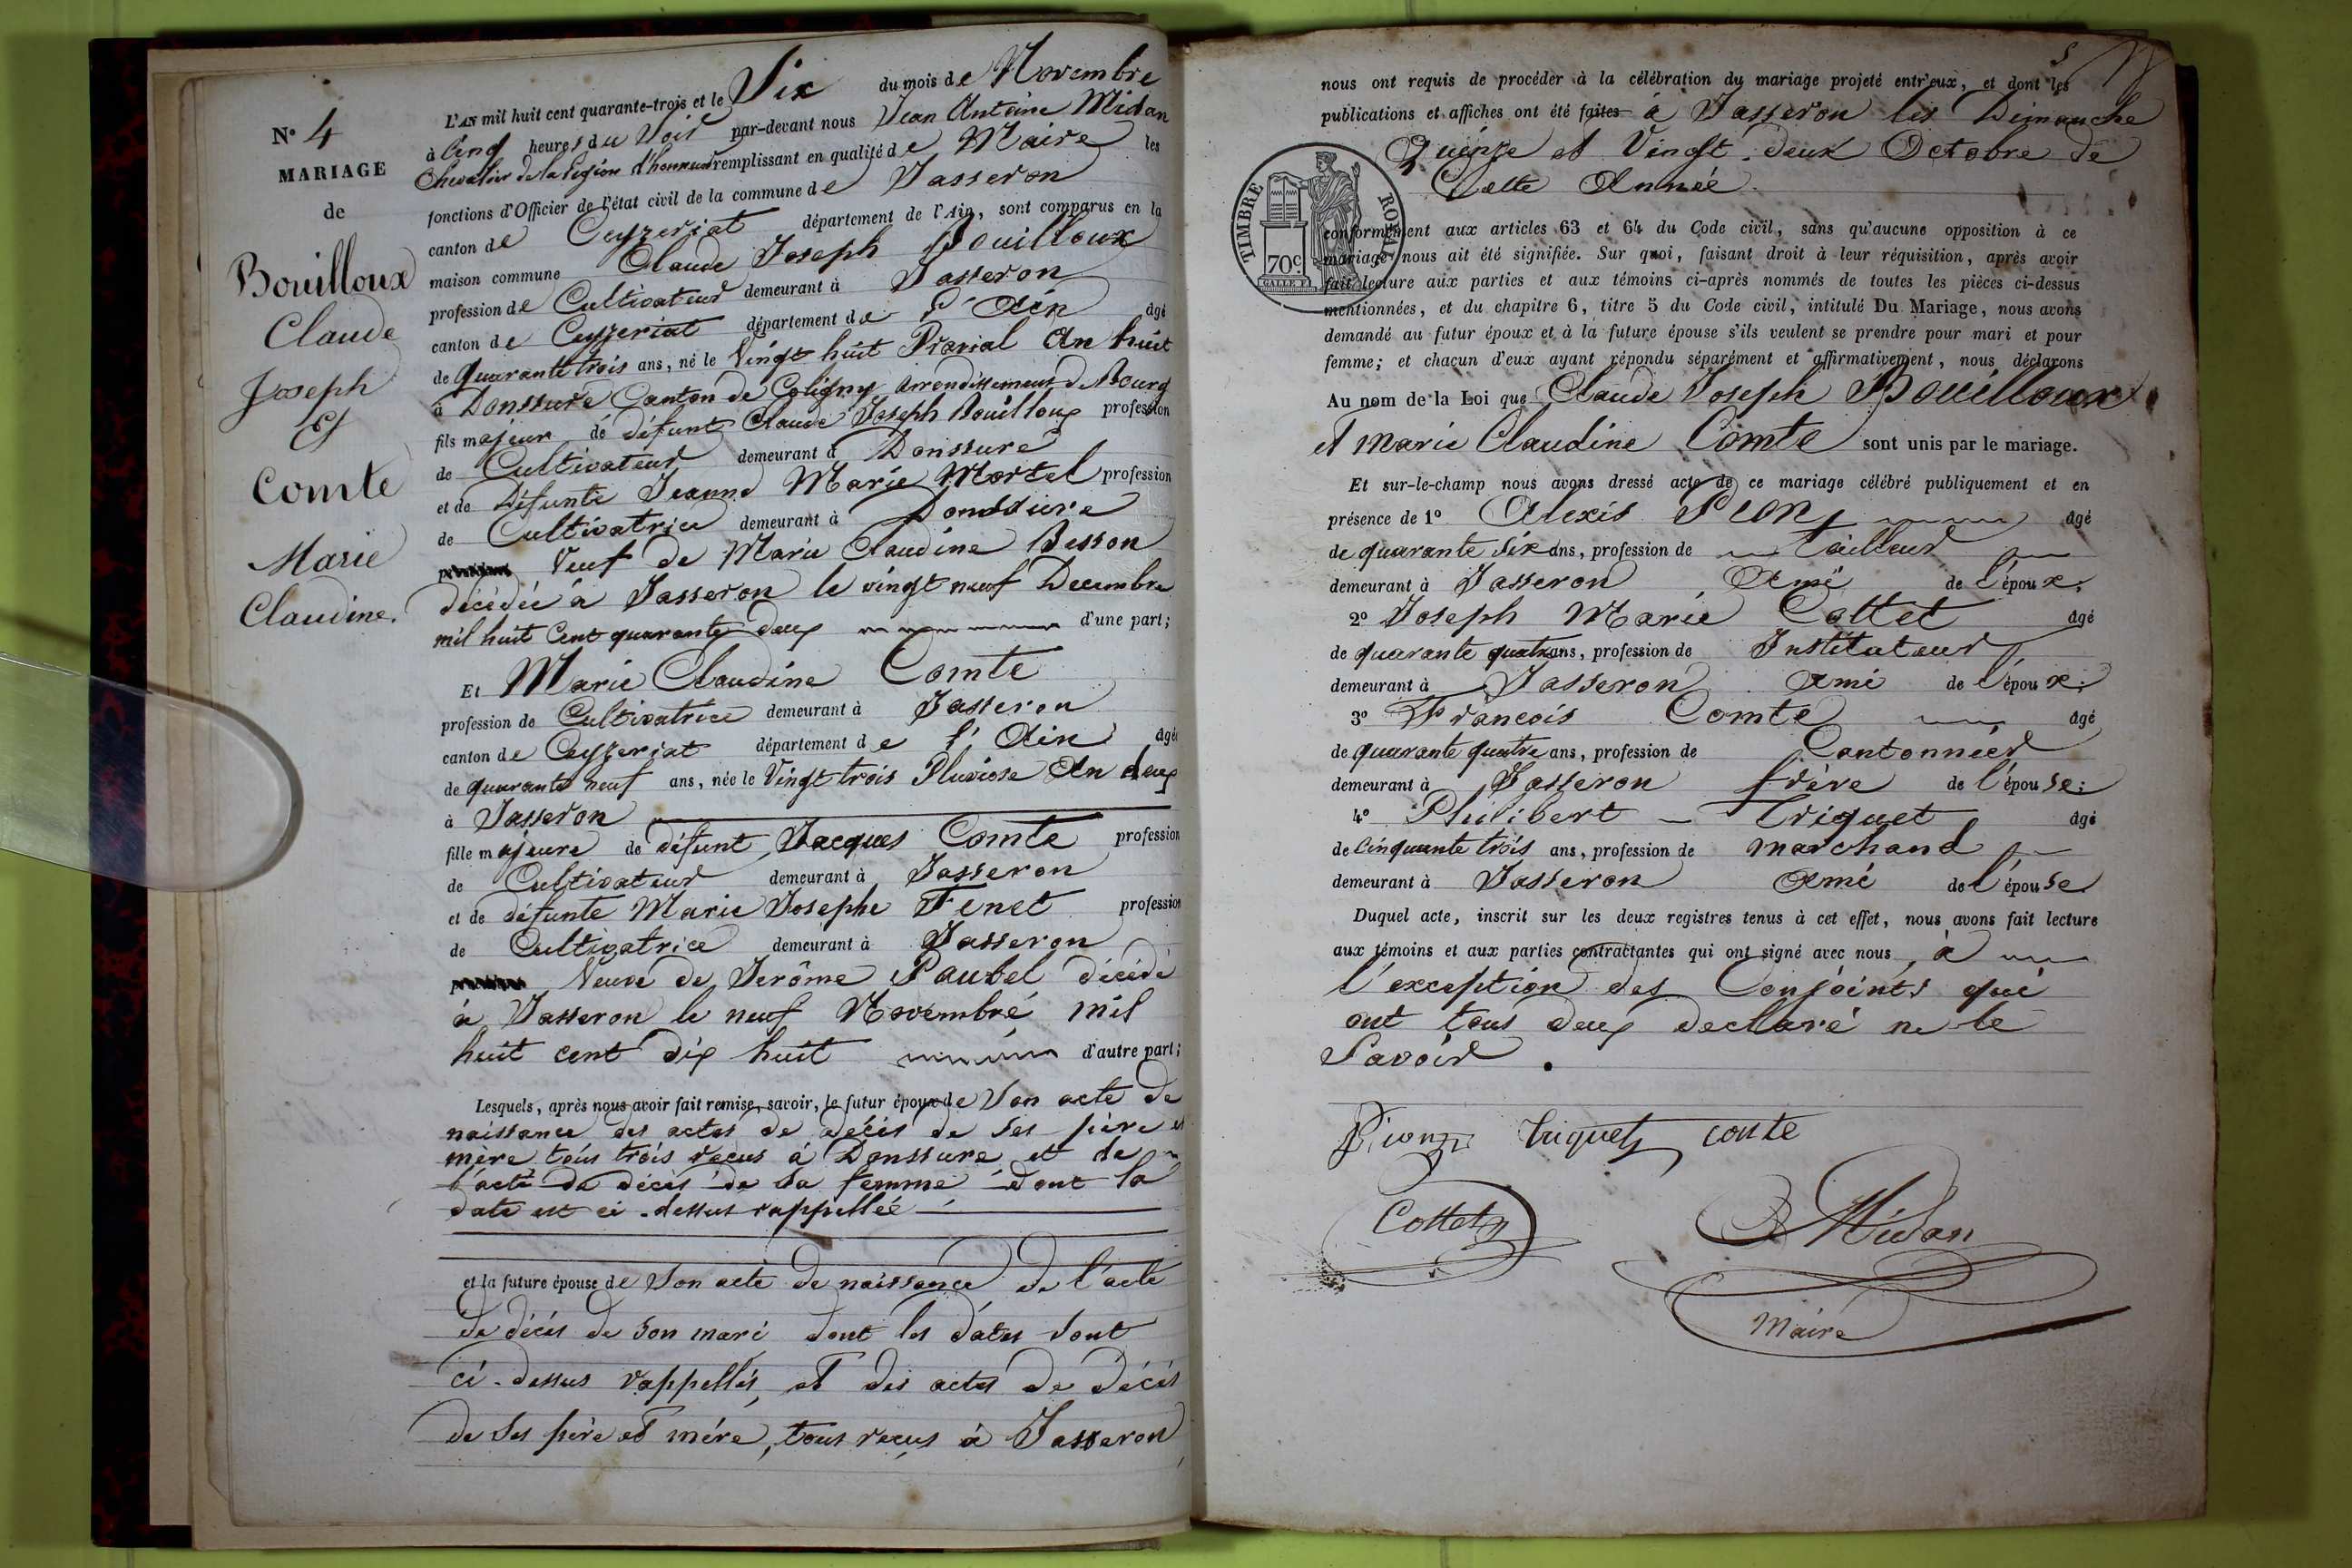 N° 4
MARIAGE
de
Bouilloux
Claude
Joseph
Et
Comte
Marie
Claudine.
L'AN mil huit cent quarante-trois et le Six du mois de Novembre
à Cinq heures du Soir par-devant nous Jean Antoine Midan
Chevalier de la Légion d'honneur remplissant en qualité de Maire les
fonctions d'Officier de l'état civil de la commune de Jasseron
canton de Ceyzeriat département de l'Ain, sont comparus en la
maison commune Claude Joseph Bouilloux
profession de Cultivateur demeurant à Jasseron
canton de Ceyzeriat département de l'Ain âgé
de quarante trois ans, né le Vingt huit Prarial An huit
à Donssure Canton de Coligny arrondissement de Bourg
fils majeur de défunt Claude Joseph Bouilloux profession
de Cultivateur demeurant à Donssure
et de Défunte Jeanne Marie Mortel profession
de Cultivatrice demeurant à Donssure
Veuf de Marie Claudine Besson
décédée à Jasseron le vingt neuf Decembre
mil huit Cent quarante deux d'une part;
Et Marie Claudine Comte
profession de Cultivatrice demeurant à Jasseron
canton de Ceyzeriat département de l'Ain âgée
de quarante neuf ans, née le Vingt trois Pluviose An deux
à Jasseron
fille majeure de défunt Jacques Comte profession
de Cultivateur demeurant à Jasseron
et de défunte Marie Josephe Fenet profession
de Cultivatrice demeurant à Jasseron
Veuve de Jerôme Paubel décédé
à Jasseron le neuf Novembre mil
huit cent dix huit d'autre part;
Lesquels, après nous avoir fait remise, savoir, le futur époux de Son acte de
naissance des actes de décés de ses père et
mère tous trois reçus à Donssure et de
l'acte de décés de sa femme dont la
date est ci-dessus rappellée
et la future épouse de Son acte de naissance de l'acte
de décés de son mari dont les dates sont
ci-dessus rappellés, et des actes de décés
de ses père et mère, tous reçus à Jasseron
5
nous ont requis de procéder à la célébration du mariage projeté entr'eux, et dont les
publications et affiches ont été faites à Jasseron les Dimanche
Quinze et Vingt-deux Octobre de
Cette Année.
TIMBRE ROYAL
70c.
conformément aux articles 63 et 64 du Code civil, sans qu'aucune opposition à ce
mariage nous ait été signifiée. Sur quoi, faisant droit à leur réquisition, après avoir
fait lecture aux parties et aux témoins ci-après nommés de toutes les pièces ci-dessus
mentionnées, et du chapitre 6, titre 5 du Code civil, intitulé Du Mariage, nous avons
demandé au futur époux et à la future épouse s'ils veulent se prendre pour mari et pour
femme; et chacun d'eux ayant répondu séparément et affirmativement, nous déclarons
Au nom de la Loi que Claude Joseph Bouilloux
et Marie Claudine Comte sont unis par le mariage.
Et sur-le-champ nous avons dressé acte de ce mariage célébré publiquement et en
présence de 1° Alexis Pion âgé
de quarante six ans, profession de tailleur
demeurant à Jasseron Ami de l'époux.
2° Joseph Marie Cottet âgé
de quarante quatre ans, profession de Instituteur
demeurant à Jasseron Ami de l'époux;
3° François Comte âgé
de quarante quatre ans, profession de Cantonnier
demeurant à Jasseron frère de l'épouse;
4° Philibert Triquet âgé
de Cinquante trois ans, profession de marchand
demeurant à Jasseron Ami de l'épouse
Duquel acte, inscrit sur les deux registres tenus à cet effet, nous avons fait lecture
aux témoins et aux parties contractantes qui ont signé avec nous, à
l'exception des Conjoints qui
ont tous deux declaré ne le
Savoir.
Pion triquet conte
Cottet Midan
Maire